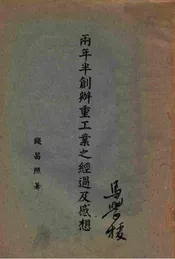 兩年半創辦重工業之經過及感想
錢昌照著